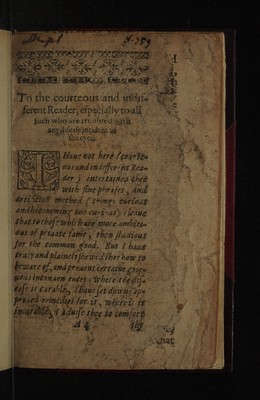 Dupl
To the courteous and indif-
ferent Reader, especially to all
such who are troubled with
any disease incident to
the eyes.
I Haue not here (courte-
ous and indifferent Rea-
der) entertained thee
with fine phrases, and
artificiall method (things curious
and beseeming too curious) leaue
that to those which are more ambiti-
ous of private fame, then studious
for the common good. But I haue
truly and plainely shewed thee how to
beware of, and preuent certaine grie-
uous into then entes: where the dis-
ease is curable, I haue set down ap-
proued remedies for it, where it is
incurable, I aduise thee to comfort
A 4
thy
nat